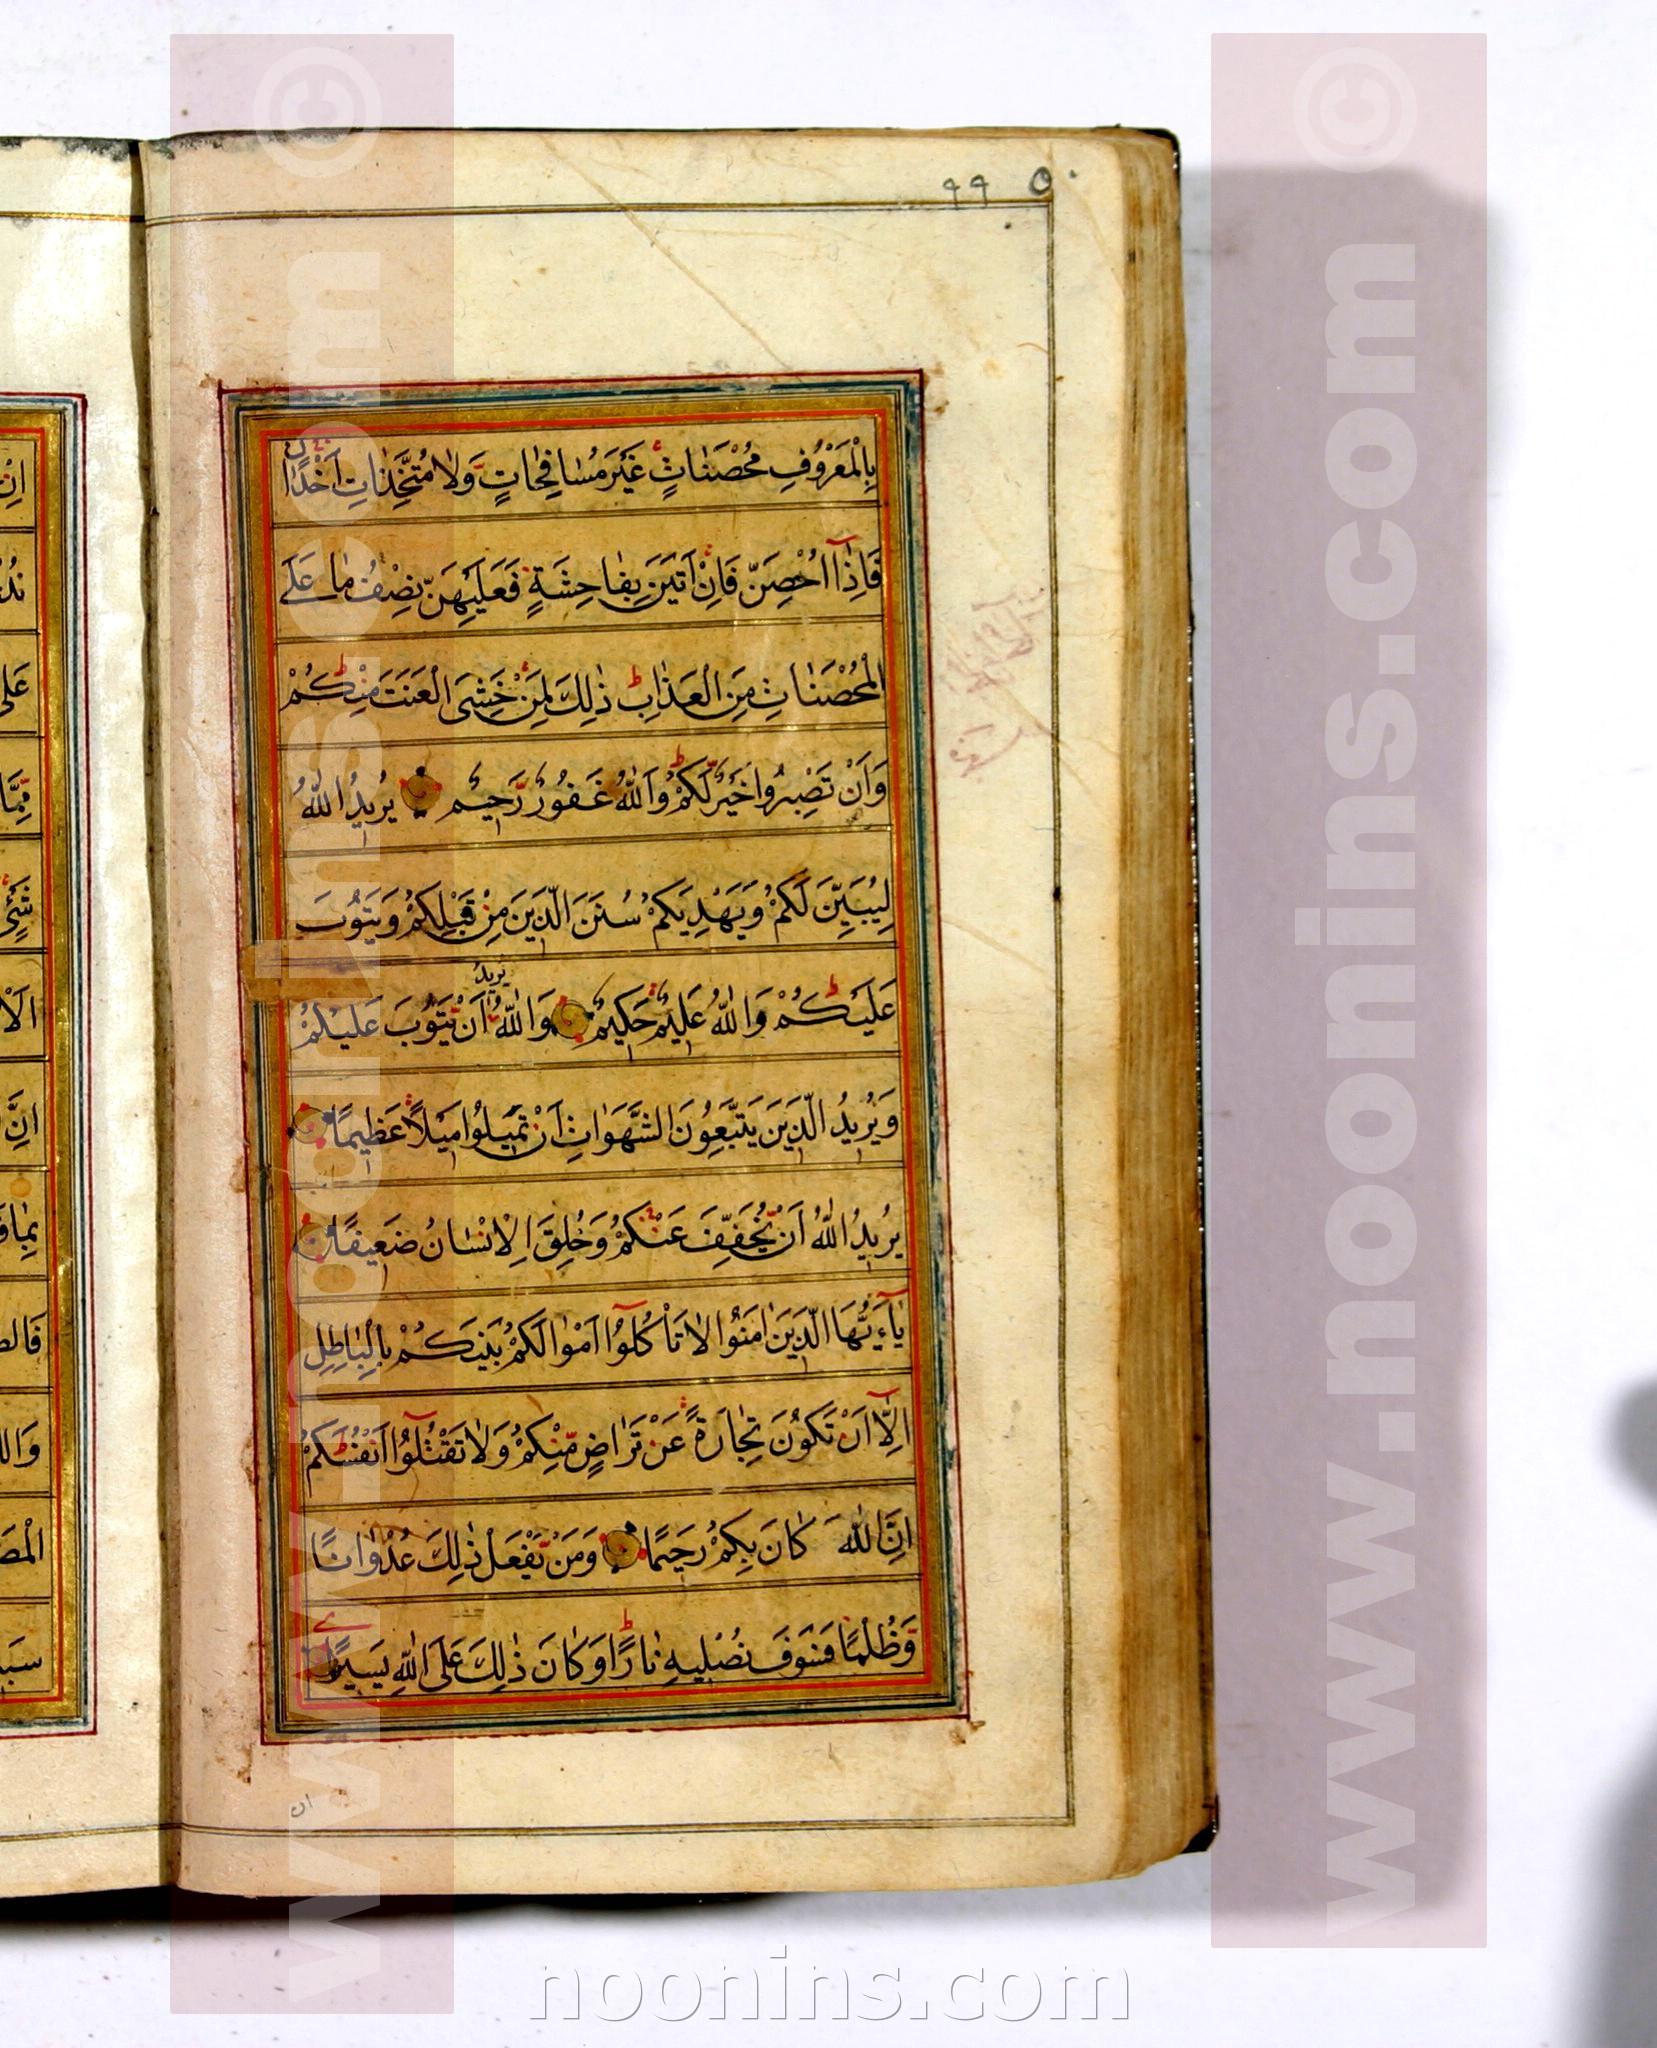 ٩٩ ٥٠
بِالْمَعْرُوفِ مُحْصَنَاتٍ غَيْرَ مُسَافِحَاتٍ وَلَا مُتَّخِذَاتِ اَخْدَانٍ
فَاِذَآ اُحْصِنَّ فَاِنْ اَتَيْنَ بِفَاحِشَةٍ فَعَلَيْهِنَّ نِصْفُ مَا عَلَى
الْمُحْصَنَاتِ مِنَ الْعَذَابِ ذٰلِكَ لِمَنْ خَشِىَ الْعَنَتَ مِنْكُمْ
وَاَنْ تَصْبِرُوا خَيْرٌ لَكُمْ وَاللّٰهُ غَفُورٌ رَحِيمٌ يُرِيدُ اللّٰهُ
لِيُبَيِّنَ لَكُمْ وَيَهْدِيَكُمْ سُنَنَ الَّذِينَ مِنْ قَبْلِكُمْ وَيَتُوبَ
عَلَيْكُمْ وَاللّٰهُ عَلِيمٌ حَكِيمٌ وَاللّٰهُ يُرِيدُ اَنْ يَتُوبَ عَلَيْكُمْ
وَيُرِيدُ الَّذِينَ يَتَّبِعُونَ الشَّهَوَاتِ اَنْ تَمِيلُوا مَيْلًا عَظِيمًا
يُرِيدُ اللّٰهُ اَنْ يُخَفِّفَ عَنْكُمْ وَخُلِقَ الْاِنْسَانُ ضَعِيفًا
يَآءَيُّهَا الَّذِينَ اٰمَنُوا لَا تَاْكُلُوٓا اَمْوَالَكُمْ بَيْنَكُمْ بِالْبَاطِلِ
اِلَّآ اَنْ تَكُونَ تِجَارَةً عَنْ تَرَاضٍ مِنْكُمْ وَلَا تَقْتُلُوٓا اَنْفُسَكُمْ
اِنَّ اللّٰهَ كَانَ بِكُمْ رَحِيمًا وَمَنْ يَفْعَلْ ذٰلِكَ عُدْوَانًا
وَظُلْمًا فَسَوْفَ نُصْلِيهِ نَارًا وَكَانَ ذٰلِكَ عَلَى اللّٰهِ يَسِيرًا
ان
© www.noonins.com
© www.noonins.com
noonins.com